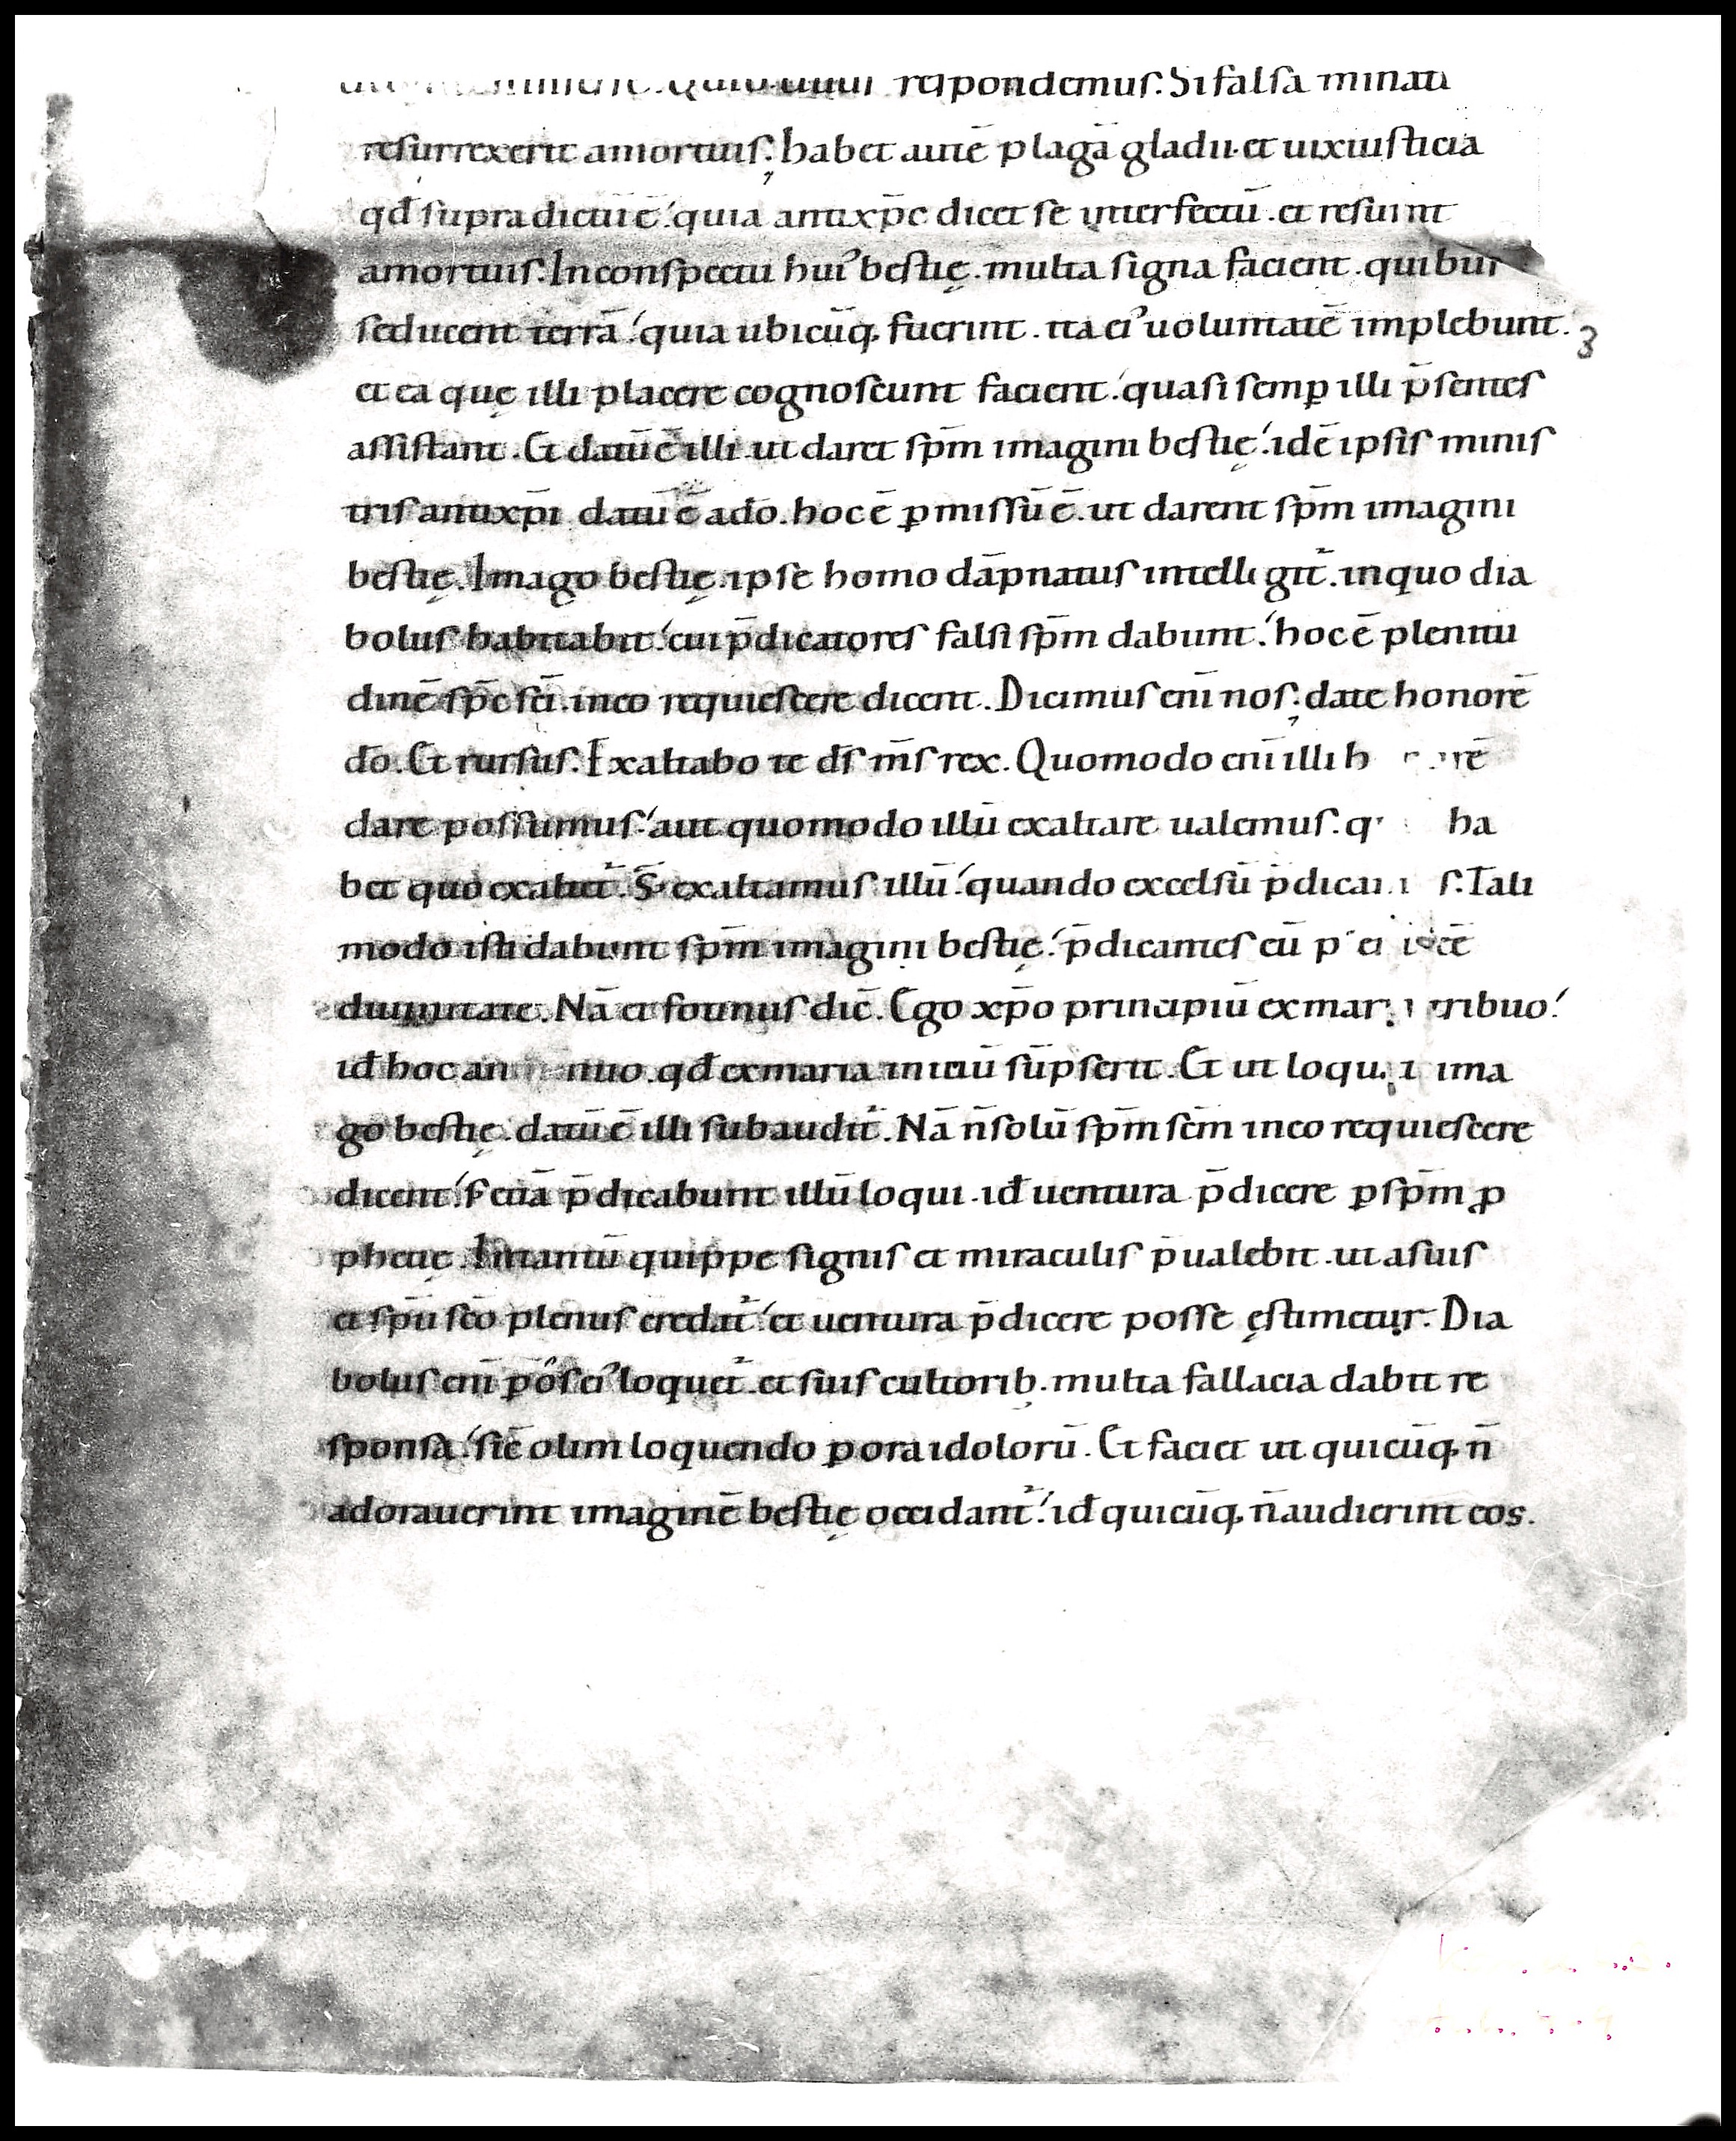 respondemus. Si falsa minati
resurrexerit amortuis; habet autē plagā gladii. et uixiusticia
qđ supradictū ē. quia antixp̄c dicet se interfectū. et
amortuis. Inconspectu hui᾽ bestię. multa signa facient. quibus
seducent terrā. quia ubicūq. fuerint. ita ei᾽ uoluntatē implebunt.
et ea quę illi placere cognoscunt facient. quasi semꝑ illi p̄sentes
assistant. Et datū ē illi. ut daret sp̄m imagini bestię. idē ipsis minis
tris antixp̄i datū ē ado. hoc ē ꝑmissū ē. ut darent sp̄m imagini
bestię. Imago bestię. ipse homo dāpnatus intelligit᷑. inquo dia
bolus habitabit. cui p̄dicatores falsi sp̄m dabunt. hoc ē plenitu
dinē sp̄c sc̄i. ineo requiescere dicent. Dicimus eni̅ nos; date honorē
dō. Et rursus. Exaltabo te ds̄ m̄s rex. Quomodo eni̅ illi
dare possumus. aut quomodo illū exaltare ualemus. ha
bet quo exaltet᷑. S; exaltamus illū. quando excelsū Tali
modo isti dabunt sp̄m imagini bestię. p̄dicantes eū
diuinitate. Nā et fotinus dic̄. Ego xp̄o principiū ex tribuo.
iđ hoc nuo. qđ exmaria iniciū sūpserit. Et ut ima
go bestię. datū ē illi subaudit᷑. Nā n̄ solū sp̄m sc̄m ineo requiescere
dicent. s; etiā p̄dicabunt illū loqui. iđ uentura p̄dicere ꝑ sp̄m ꝓ
phetię. Intantū quippe signis et miraculis p̄ualebit. ut asuis
et sp̄u sc̄o plenus credat᷑. et uentura p̄dicere posse ęstimetur. Dia
bolus eni̅ ꝑ os ei᾽ loquet᷑. et suis cultorib. multa fallacia dabit re
sponsa. sic̄ olim loquendo ꝑ ora idolorū. Et faciet ut quicūq. n̄
adorauerint imaginē bestię occidant᷑. iđ quicūq. n̄ audierint eos.